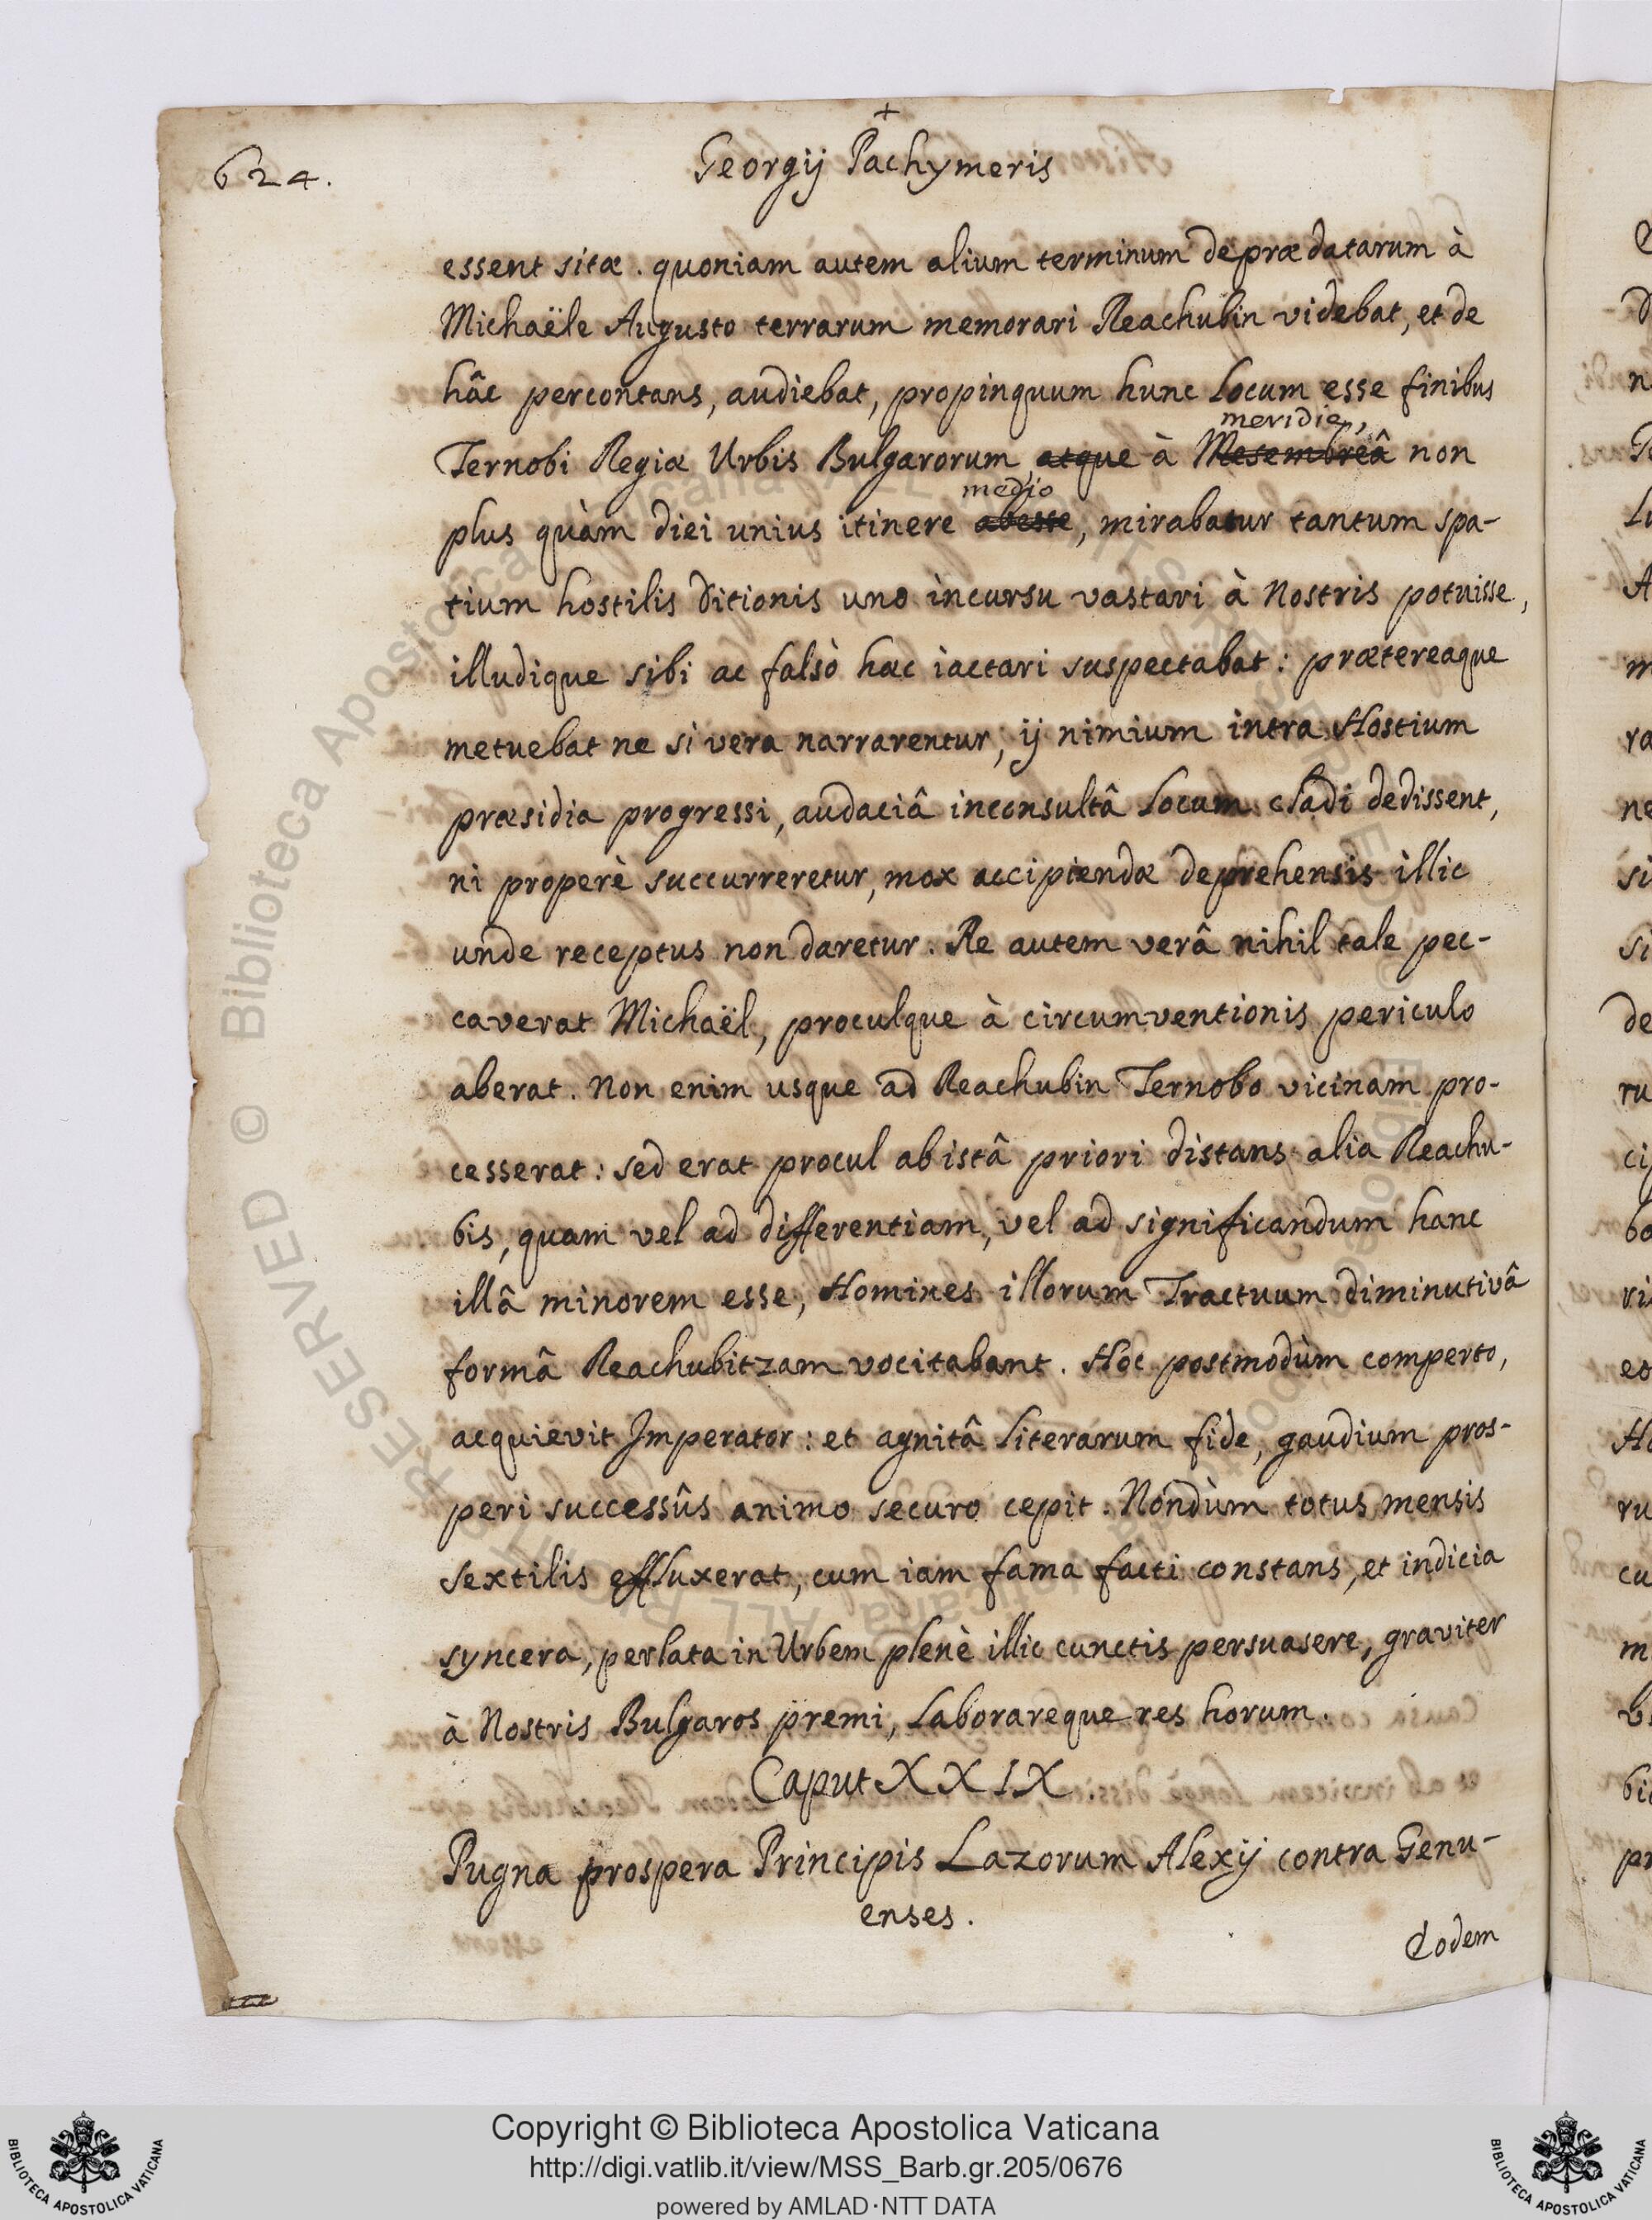 +
624.
Georgij Pachymeris
essent sitæ. quoniam autem alium terminum deprædatarum à
Michaële Augusto terrarum memorari Reachubin videbat, et de
hâc percontans, audiebat, propinquum hunc Locum esse finibus
meridie,
Ternobi Regiæ Urbis Bulgarorum atque à Mesembreâ non
medio
plus quàm diei unius itinere abesse, mirabatur tantum spa-
tium hostilis ditionis uno incursu vastari à Nostris potuisse,
illudique sibi ac falsò hæc iactari suspectabat: prætereaque
metuebat ne si vera narrarentur, ij nimium intra Hostium
præsidia progressi, audaciâ inconsultâ Locum cladi dedissent,
ni properè succurreretur, mox accipiendæ deprehensis illic
unde receptus non daretur. Re autem verâ nihil tale pec-
caverat Michaël, proculque à circumventionis periculo
aberat. Non enim usque ad Reachubin Ternobo vicinam pro-
cesserat: sed erat procul ab istâ priori distans alia Reachu-
bis, quam vel ad differentiam, vel ad significandum hanc
illâ minorem esse, Homines illorum Tractuum diminutivâ
formâ Reachubitzam vocitabant. Hoc postmodùm comperto,
acquievit Imperator: et agnitâ Literarum fide, gaudium pros-
peri successûs animo securo cepit. Nondùm totus mensis
sextilis effluxerat, cum iam fama facti constans, et indicia
syncera, perlata in Urbem plenè illic cunctis persuasere, graviter
à Nostris Bulgaros premi, Laborareque res horum.
Caput XXIX
Pugna prospera Principis Lazorum Alexij contra Genu-
enses.
Eodem
Copyright © Biblioteca Apostolica Vaticana
http://digi.vatlib.it/view/MSS_Barb.gr.205/0676
powered by AMLAD·NTT DATA